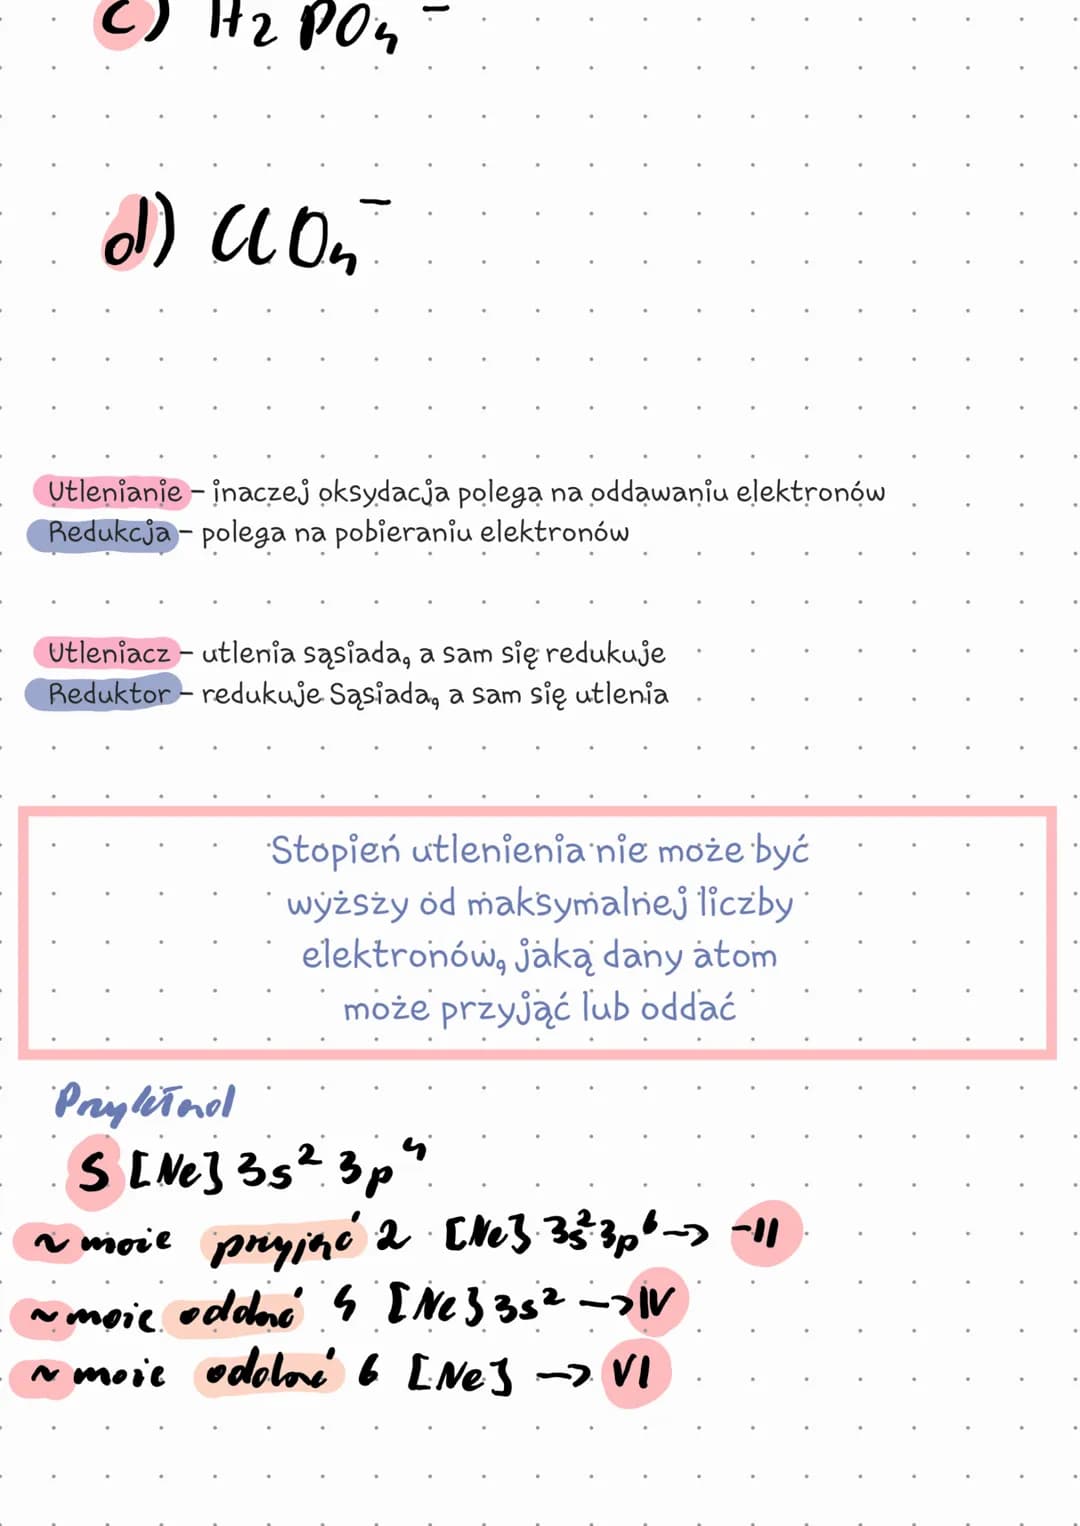 c) H2PO4-
d) ClO4-
Utlenianie - inaczej oksydacja polega na oddawaniu elektronów
Redukcja - polega na pobieraniu elektronów
Utleniacz - utlenia sąsiada, a sam się redukuje
Reduktor - redukuje Sąsiada, a sam się utlenia
Stopień utlenienia nie może być
wyższy od maksymalnej liczby
elektronów, jaką dany atom
może przyjąć lub oddać
Przykład
S [Ne] 3s² 3p⁴
~ może przyjąć 2 [Ne] 3s² 3p⁶ -> -II
~ może oddać 4 [Ne] 3s² -> IV
~ może oddać 6 [Ne] -> VI